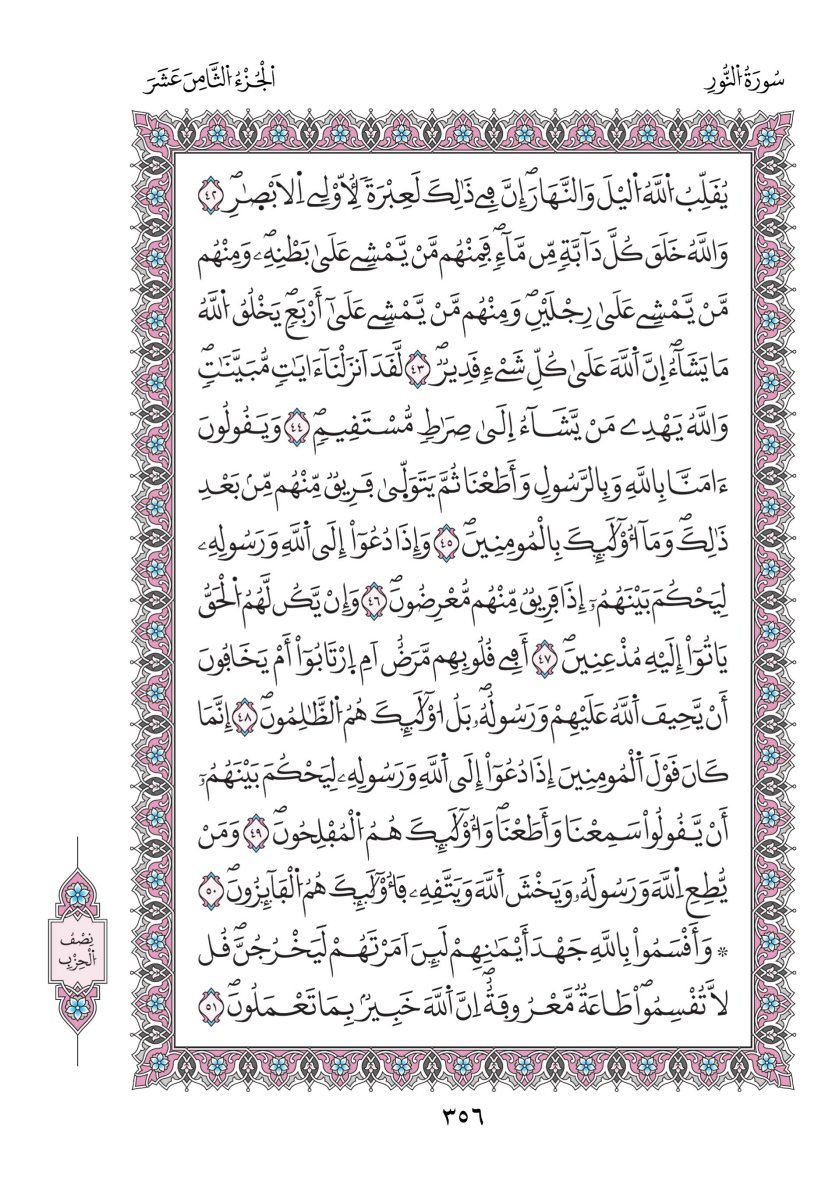 سُورَةُ اُ۬لنُّورِ
اَ۬لْجُزْءُ اُ۬لثَّامِنَ عَشَرَ
يُقَلِّبُ اُ۬للَّهُ اُ۬ليْلَ وَالنَّهَارَۖ إِنَّ فِے ذَٰلِكَ لَعِبْرَةٗ لِّأُوْلِے اِ۬لَابْصٰ۪رِۖ ٤٢
وَاللَّهُ خَلَقَ كُلَّ دَآبَّةٖ مِّن مَّآءٖۖ فَمِنْهُم مَّنْ يَّمْشِے عَلَىٰ بَطْنِهِۦۖ وَمِنْهُم
مَّنْ يَّمْشِے عَلَىٰ رِجْلَيْنِۖ وَمِنْهُم مَّنْ يَّمْشِے عَلَىٰٓ أَرْبَعٖۖ يَخْلُقُ اُ۬للَّهُ
مَا يَشَآءُۖ إِنَّ اَ۬للَّهَ عَلَىٰ كُلِّ شَےْءٖ قَدِيرٞۖ ٤٣ لَّقَدَ اَنزَلْنَآ ءَايَٰتٖ مُّبَيَّنَٰتٖۖ
وَاللَّهُ يَهْدِے مَنْ يَّشَآءُ اِلَىٰ صِرَٰطٖ مُّسْتَقِيمٖۖ ٤٤ وَيَقُولُونَ
ءَامَنَّا بِاللَّهِ وَبِالرَّسُولِ وَأَطَعْنَا ثُمَّ يَتَوَلّ۪ىٰ فَرِيقٞ مِّنْهُم مِّنۢ بَعْدِ
ذَٰلِكَۖ وَمَآ أُوْلَٰٓئِكَ بِالْمُومِنِينَۖ ٤٥ وَإِذَا دُعُوٓاْ إِلَى اَ۬للَّهِ وَرَسُولِهِۦ
لِيَحْكُمَ بَيْنَهُمُۥٓ إِذَا فَرِيقٞ مِّنْهُم مُّعْرِضُونَۖ ٤٦ وَإِنْ يَّكُن لَّهُمُ اُ۬لْحَقُّ
يَاتُوٓاْ إِلَيْهِ مُذْعِنِينَۖ ٤٧ أَفِے قُلُوبِهِم مَّرَضٌ اَمِ اِ۪رْتَابُوٓاْ أَمْ يَخَافُونَ
أَنْ يَّحِيفَ اَ۬للَّهُ عَلَيْهِمْ وَرَسُولُهُۥۖ بَلُ اوْلَٰٓئِكَ هُمُ اُ۬لظَّٰلِمُونَۖ ٤٨ إِنَّمَا
كَانَ قَوْلَ اَ۬لْمُومِنِينَ إِذَا دُعُوٓاْ إِلَى اَ۬للَّهِ وَرَسُولِهِۦ لِيَحْكُمَ بَيْنَهُمُۥٓ
أَنْ يَّقُولُواْ سَمِعْنَا وَأَطَعْنَاۖ وَأُوْلَٰٓئِكَ هُمُ اُ۬لْمُفْلِحُونَۖ ٤٩ وَمَنْ
يُّطِعِ اِ۬للَّهَ وَرَسُولَهُۥ وَيَخْشَ اَ۬للَّهَ وَيَتَّقِهِۦ فَأُوْلَٰٓئِكَ هُمُ اُ۬لْفَآئِزُونَۖ ٥٠
۞ وَأَقْسَمُواْ بِاللَّهِ جَهْدَ أَيْمَٰنِهِمْ لَئِنَ اَمَرْتَهُمْ لَيَخْرُجُنَّۖ قُل
لَّا تُقْسِمُواْۖ طَاعَةٞ مَّعْرُوفَةٌۖ اِنَّ اَ۬للَّهَ خَبِيرُۢ بِمَا تَعْمَلُونَۖ ٥١
نِصْفُ
اُ۬لْحِزْبِ
٣٥٦